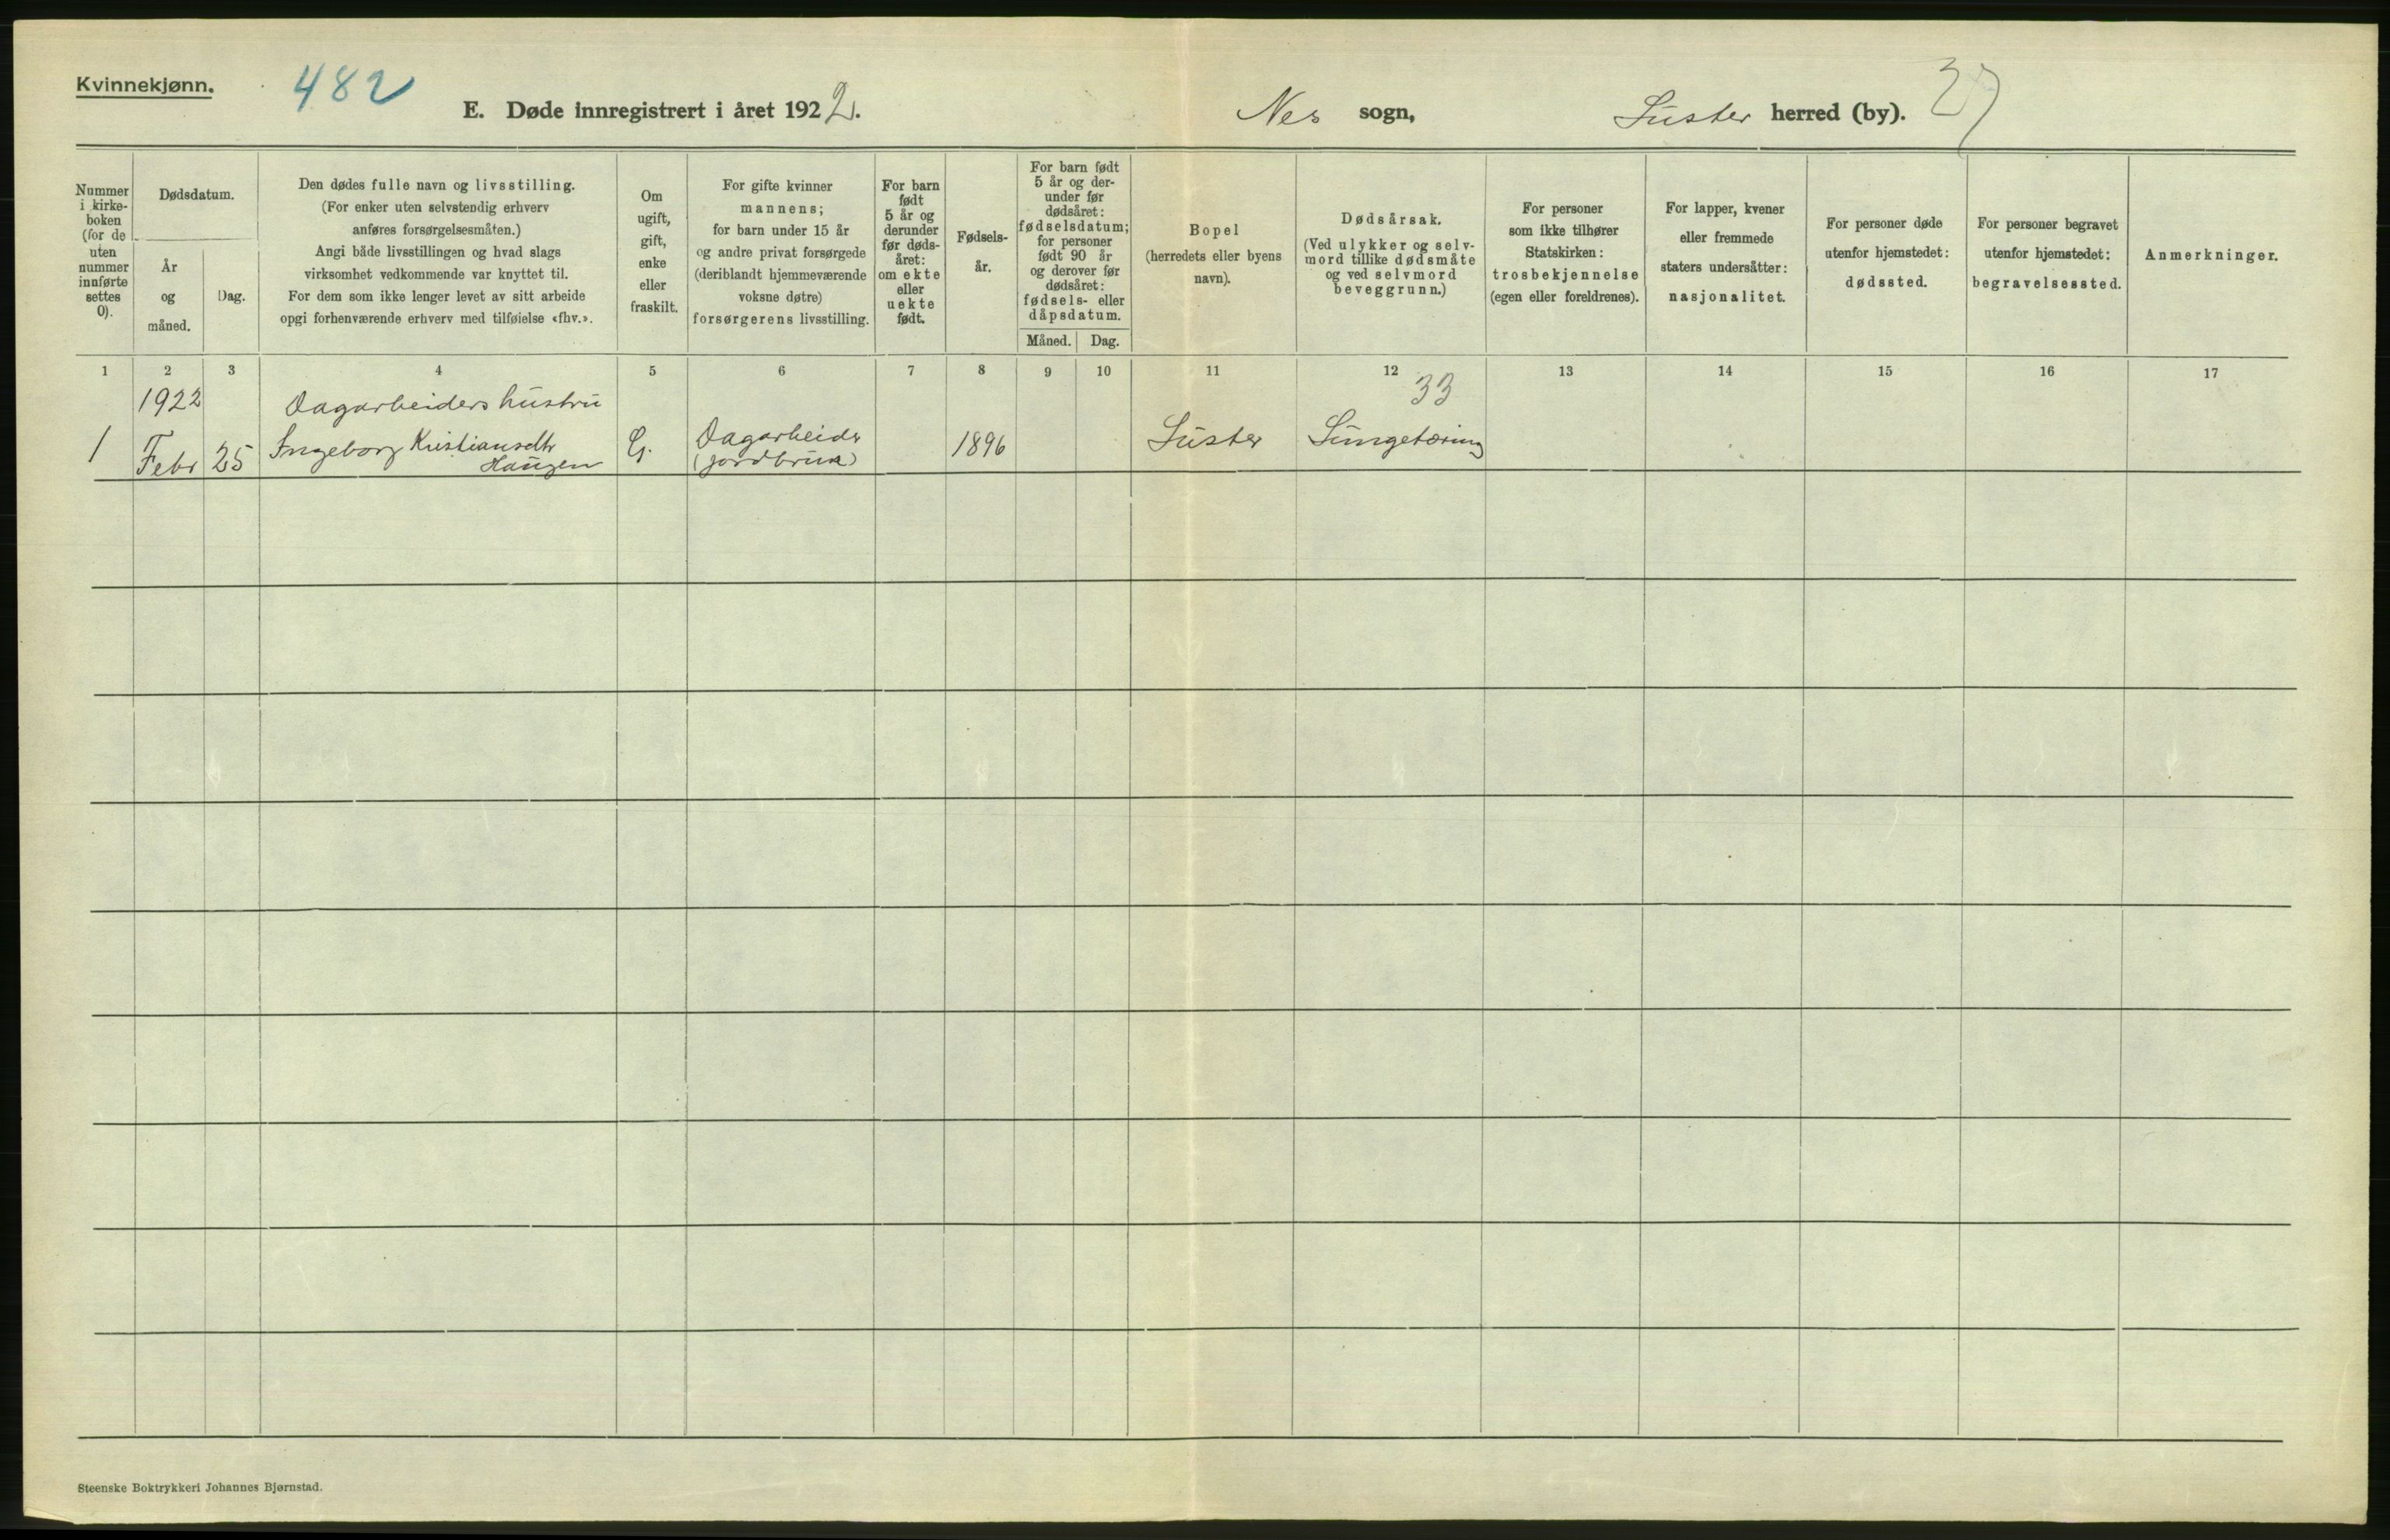 Kvinnekjønn.
482
E. Døde innregistrert i året 1922.
Nes sogn,
Luster herred (by).
27
Nummer
i kirke-
boken
(for de
uten
nummer
innførte
settes
0).
Dødsdatum.
År
og
måned.
Dag.
Den dødes fulle navn og livsstilling.
(For enker uten selvstendig erhverv
anføres forsørgelsesmåten.)
Angi både livsstillingen og hvad slags
virksomhet vedkommende var knyttet til.
For dem som ikke lenger levet av sitt arbeide
opgi forhenværende erhverv med tilføielse «fhv.».
Om
ugift,
gift,
enke
eller
fraskilt.
For gifte kvinner
mannens;
for barn under 15 år
og andre privat forsørgede
(deriblandt hjemmeværende
voksne døtre)
forsørgerens livsstilling.
For barn
født
5 år og
derunder
før døds-
året:
om ekte
eller
uekte
født.
Fødsels-
år.
For barn født
5 år og der-
under før
dødsåret:
fødselsdatum;
for personer
født 90 år
og derover før
dødsåret:
fødsels- eller
dåpsdatum.
Måned.
Dag.
Bopel
(herredets eller byens
navn).
Dødsårsak.
(Ved ulykker og selv-
mord tillike dødsmåte
og ved selvmord
beveggrunn.)
For personer
som ikke tilhører
Statskirken:
trosbekjennelse
(egen eller foreldrenes).
For lapper, kvener
eller fremmede
staters undersåtter:
nasjonalitet.
For personer døde
utenfor hjemstedet:
dødssted.
For personer begravet
utenfor hjemstedet:
begravelsessted.
Anmerkninger.
1 2 3 4 5 6 7 8 9 10 11 12 13 14 15 16 17
1922 Dagarbeiders hustru 33
1 Febr 25 Ingeborg Kristiansdtr G. Dagarbeider 1896 Luster Lungetæring
Haugen (jordbruk)
Steenske Boktrykkeri Johannes Bjørnstad.